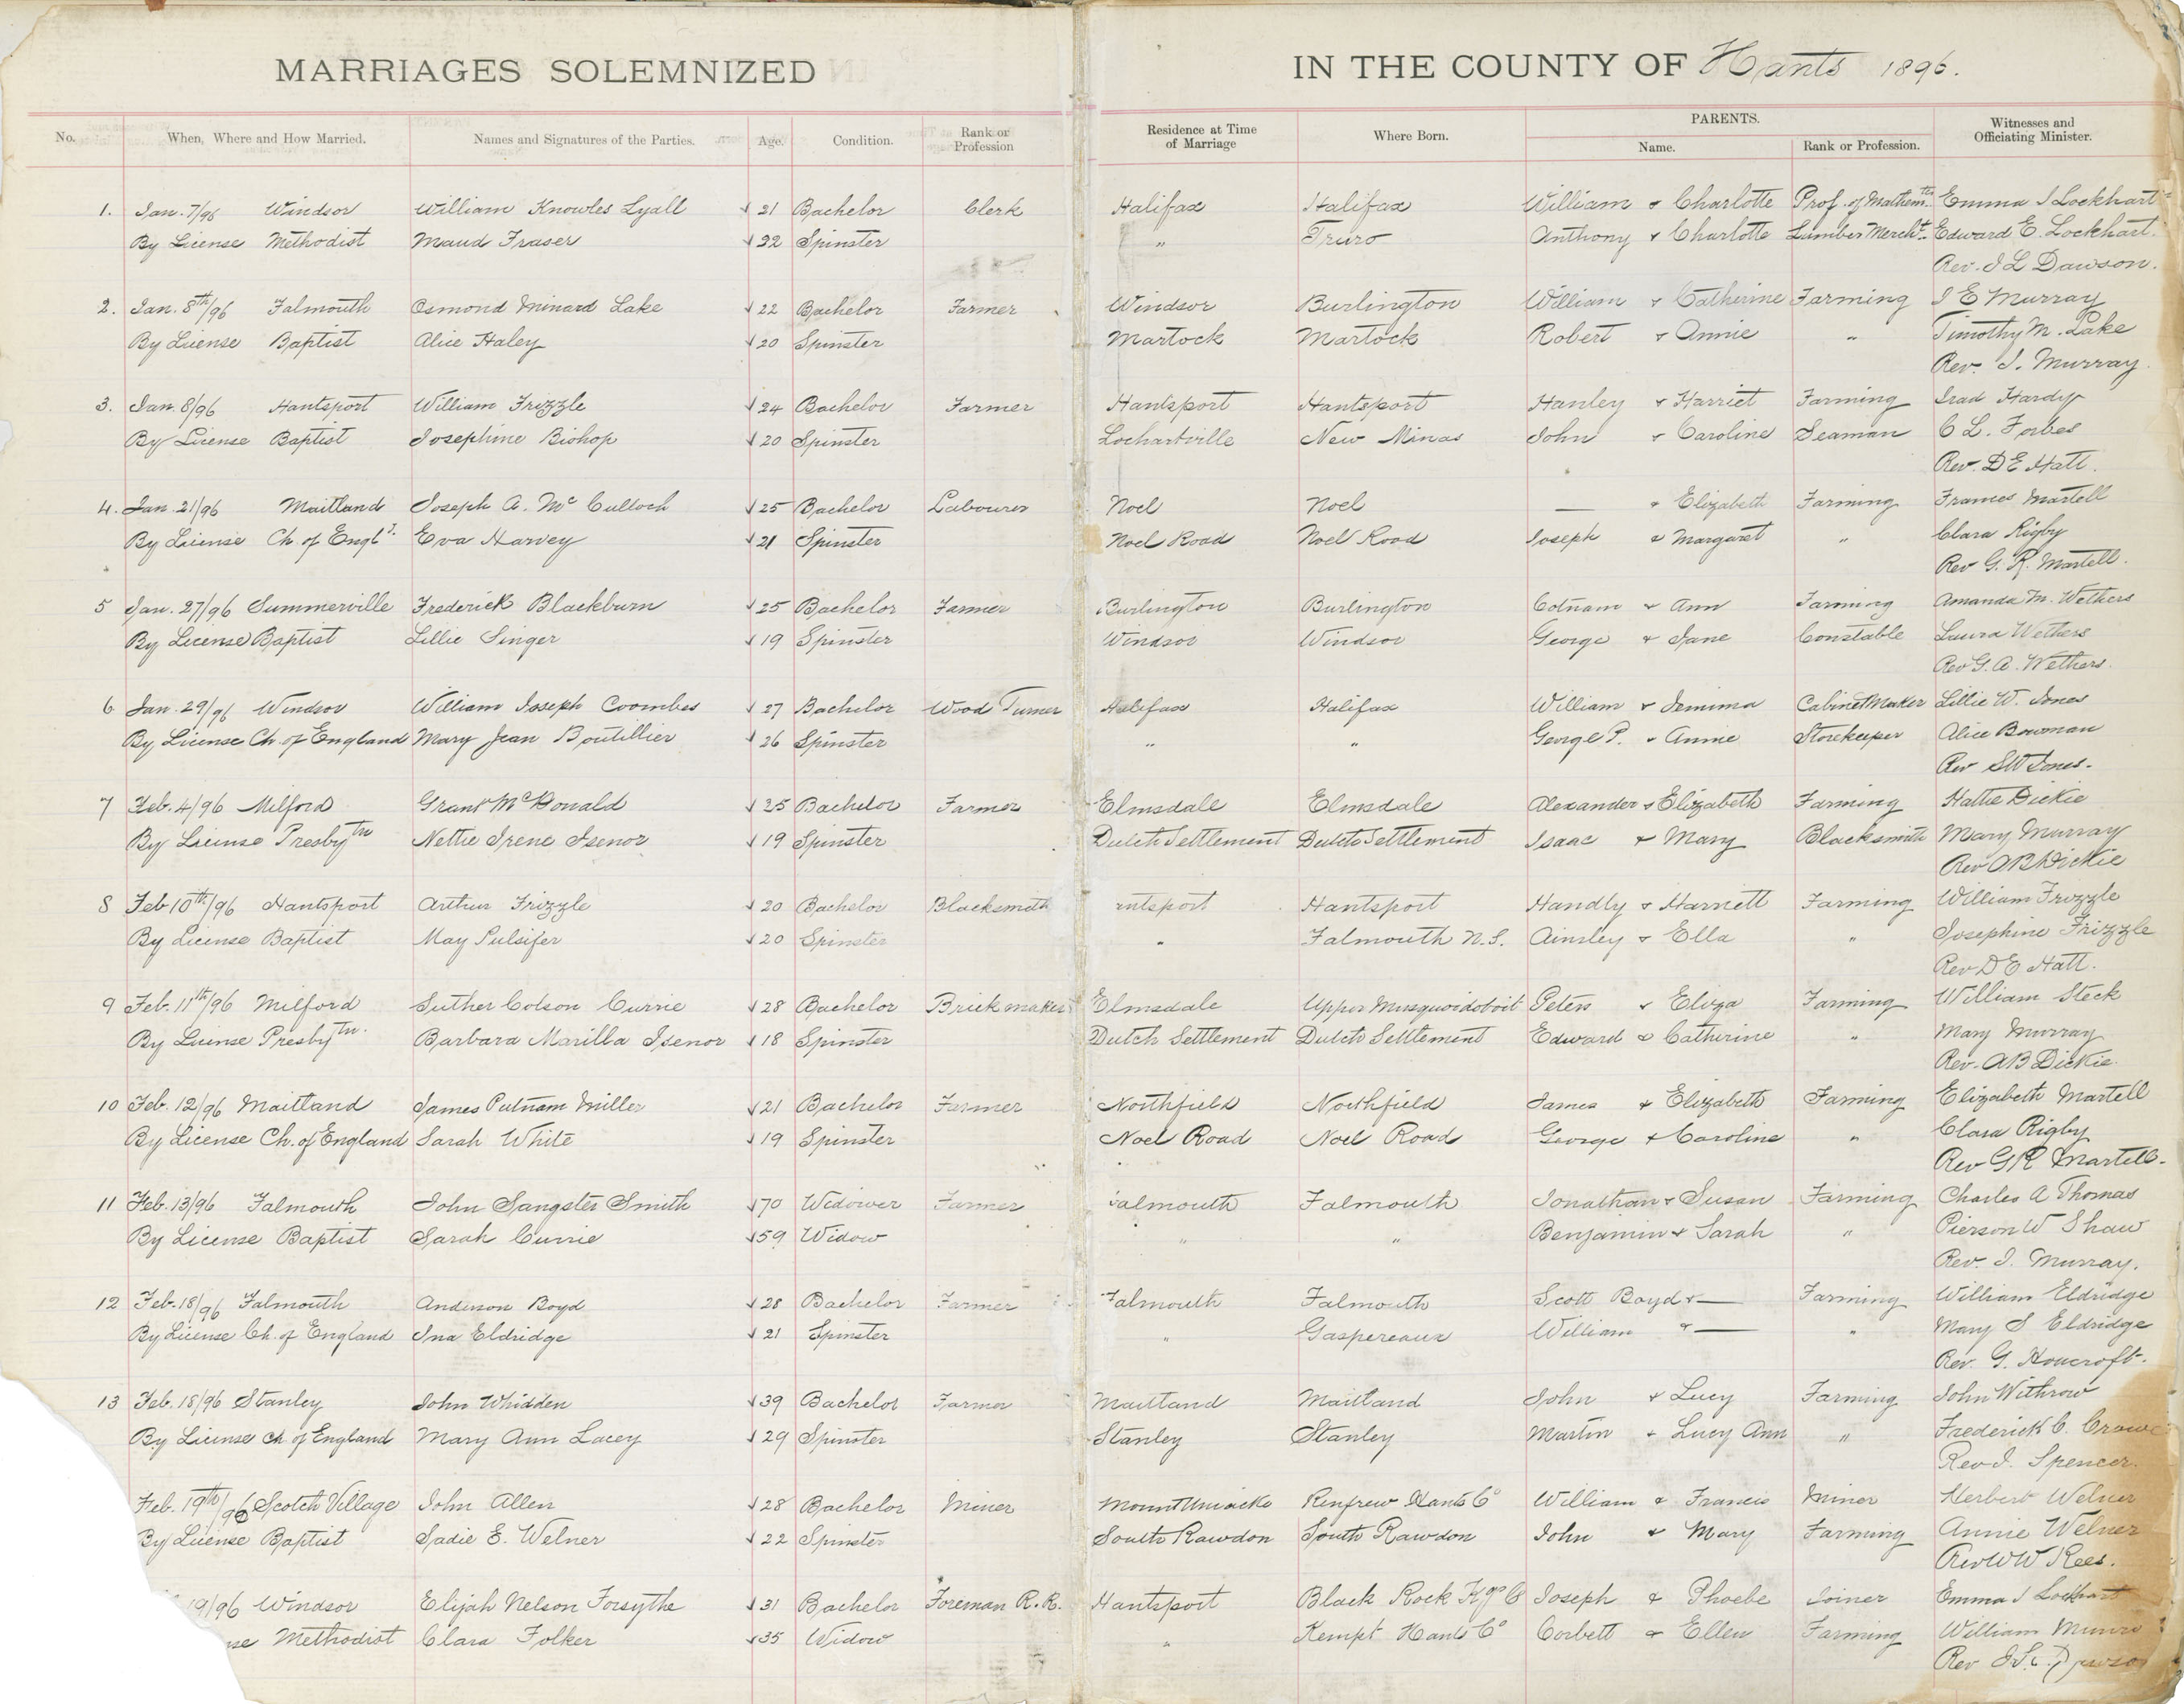 MARRIAGES SOLEMNIZED IN THE COUNTY OF Hants 1896.
No. When, Where and How Married. Names and Signatures of the Parties. Age. Condition. Rank or Profession Residence at Time of Marriage Where Born. PARENTS. Name. Rank or Profession. Witnesses and Officiating Minister.
1. Jan. 7/96 Windsor William Knowles Lyall 21 Bachelor Clerk Halifax Halifax William & Charlotte Prof. of Mathem.tcs Emma J Lockhart
By License Methodist Maud Fraser 22 Spinster " Truro Anthony & Charlotte Lumber Mercht. Edward E. Lockhart.
Rev. J L Dawson.
2. Jan. 8th/96 Falmouth Osmond Minard Lake 22 Bachelor Farmer Windsor Burlington William & Catherine Farming J E Murray
By License Baptist Alice Haley 20 Spinster Martock Martock Robert & Annie " Timothy M. Lake
Rev. J. Murray.
3. Jan. 8/96 Hantsport William Frizzle 24 Bachelor Farmer Hantsport Hantsport Hanley & Harriet Farming Irad Hardy
By License Baptist Josephine Bishop 20 Spinster Lochartville New Minas John & Caroline Seaman C L. Forbes
Rev. D E Hatt.
4. Jan. 21/96 Maitland Joseph A. McCulloch 25 Bachelor Labourer Noel Noel — & Elizabeth Farming Frances Martell
By License Ch. of Engld. Eva Harvey 21 Spinster Noel Road Noel Road Joseph & Margaret " Clara Rigby
Rev G. R. Martell.
5 Jan. 27/96 Summerville Frederick Blackburn 25 Bachelor Farmer Burlington Burlington Cotnam & Ann Farming Amanda M. Wethers
By License Baptist Lillie Singer 19 Spinster Windsor Windsor George & Jane Constable Laura Wethers
Rev G. A. Wethers.
6 Jan. 29/96 Windsor William Joseph Coombes 27 Bachelor Wood Turner Halifax Halifax William & Jemima Cabinet Maker Lillie W. Jones
By License Ch. of England Mary Jean Boutillier 26 Spinster " " George P. & Annie Storekeeper Alice Bowman
Rev S W Jones.
7 Feb. 4/96 Milford Grant McDonald 25 Bachelor Farmer Elmsdale Elmsdale Alexander & Elizabeth Farming Hattie Dickie
By License Presbytn Nettie Irene Isenor 19 Spinster Dutch Settlement Dutch Settlement Isaac & Mary Blacksmith Mary Murray
Rev A B Dickie
8 Feb 10th/96 Hantsport Arthur Frizzle 20 Bachelor Blacksmith ntsport Hantsport Handly & Harriett Farming William Frizzle
By License Baptist May Pulsifer 20 Spinster " Falmouth N.S. Ainsley & Ella " Josephine Frizzle
Rev D E Hatt.
9 Feb. 11th/96 Milford Luther Colson Currie 28 Bachelor Brickmaker Elmsdale Upper Musquoidoboit Peter & Eliza Farming William Steck
By License Presbytn. Barbara Marilla Isenor 18 Spinster Dutch Settlement Dutch Settlement Edward & Catherine " Mary Murray
Rev. A B Dickie.
10 Feb. 12/96 Maitland James Putnam Miller 21 Bachelor Farmer Northfield Northfield James & Elizabeth Farming Elizabeth Martell
By License Ch. of England Sarah White 19 Spinster Noel Road Noel Road George & Caroline " Clara Rigby
Rev G R Martell.
11 Feb. 13/96 Falmouth John Sangster Smith 70 Widower Farmer Falmouth Falmouth Jonathan & Susan Farming Charles A Thomas
By License Baptist Sarah Currie 59 Widow " " Benjamin & Sarah " Pierson W Shaw
Rev. J. Murray.
12 Feb. 18/96 Falmouth Anderson Boyd 28 Bachelor Farmer Falmouth Falmouth Scott Boyd & — Farming William Eldridge
By License Ch. of England Ina Eldridge 21 Spinster " Gaspereaux William & — " Mary S Eldridge
Rev. G. Howcroft.
13 Feb. 18/96 Stanley John Whidden 39 Bachelor Farmer Maitland Maitland John & Lucy Farming John Withrow
By License Ch. of England Mary Ann Lacey 29 Spinster Stanley Stanley Martin & Lucy Ann " Frederick C. Crowe
Rev J. Spencer.
Feb. 19th/96 Scotch Village John Allen 28 Bachelor Miner Mount Uniacke Renfrew Hants Co William & Francis Miner Herbert Welner
By License Baptist Sadie E. Welner 22 Spinster South Rawdon South Rawdon John & Mary Farming Annie Welner
Rev W W Rees.
19/96 Windsor Elijah Nelson Forsythe 31 Bachelor Foreman R.R. Hantsport Black Rock Kgs Co Joseph & Phoebe Joiner Emma J Lockhart
nse Methodist Clara Folker 35 Widow " Kempt Hants Co Corbett & Ellen Farming William Munro
Rev J. L. Dawson